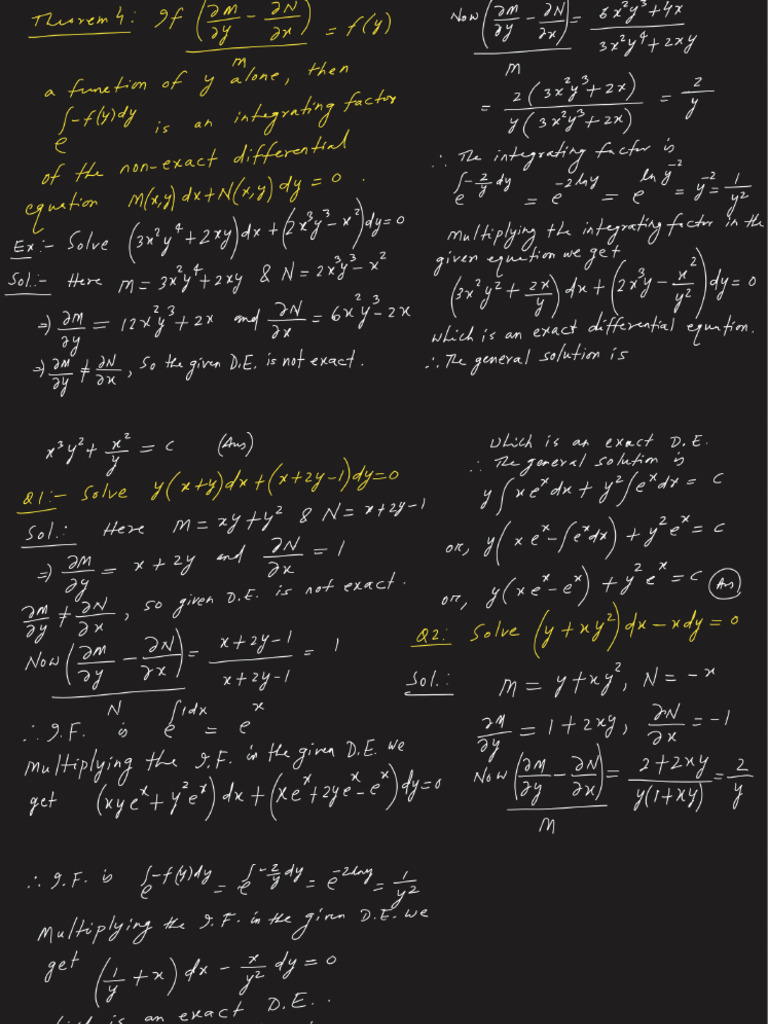 Theorem 4: If (∂M/∂y − ∂N/∂x)/M = f(y)
a function of y alone, then
e^{∫−f(y)dy} is an integrating factor
of the non-exact differential
equation M(x,y)dx + N(x,y)dy = 0.
Ex:- Solve (3x²y⁴ + 2xy)dx + (2x³y³ − x²)dy = 0
Sol:- Here M = 3x²y⁴ + 2xy & N = 2x³y³ − x²
⇒ ∂M/∂y = 12x²y³ + 2x and ∂N/∂x = 6x²y³ − 2x
⇒ ∂M/∂y ≠ ∂N/∂x, So the given D.E. is not exact.
Now (∂M/∂y − ∂N/∂x)/M = (6x²y³ + 4x)/(3x²y⁴ + 2xy)
= 2(3x²y³ + 2x)/(y(3x²y³ + 2x)) = 2/y
∴ The integrating factor is
e^{∫−2/y dy} = e^{−2lny} = e^{ln y⁻²} = y⁻² = 1/y²
Multiplying the integrating factor in the
given equation we get
(3x²y² + 2x/y)dx + (2x³y − x²/y²)dy = 0
which is an exact differential equation.
∴ The general solution is
x³y² + x²/y = c (Ans)
Q1:- Solve y(x+y)dx + (x+2y−1)dy = 0
Sol.: Here M = xy + y² & N = x+2y−1
⇒ ∂M/∂y = x + 2y and ∂N/∂x = 1
∂M/∂y ≠ ∂N/∂x, so given D.E. is not exact.
Now (∂M/∂y − ∂N/∂x)/N = (x+2y−1)/(x+2y−1) = 1
∴ I.F. is e^{∫1dx} = e^x
Multiplying the I.F. in the given D.E. we
get (xye^x + y²e^x)dx + (xe^x + 2ye^x − e^x)dy = 0
which is an exact D.E.
∴ The general solution is
y∫xe^x dx + y²∫e^x dx = c
or, y(xe^x − ∫e^x dx) + y²e^x = c
or, y(xe^x − e^x) + y²e^x = c (Ans)
Q2: Solve (y + xy²)dx − xdy = 0
Sol.: M = y + xy², N = −x
∂M/∂y = 1 + 2xy, ∂N/∂x = −1
Now (∂M/∂y − ∂N/∂x)/M = (2+2xy)/(y(1+xy)) = 2/y
∴ I.F. is e^{∫−f(y)dy} = e^{∫−2/y dy} = e^{−2lny} = 1/y²
Multiplying the I.F. in the given D.E. we
get (1/y + x)dx − x/y² dy = 0
which is an exact D.E..